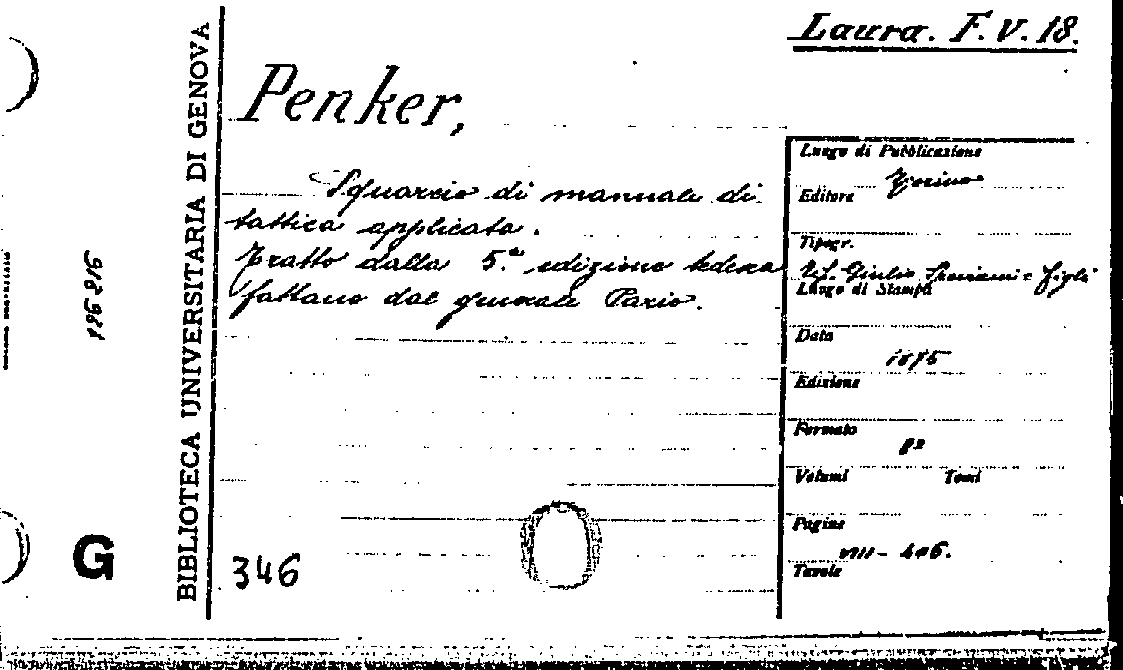 Laura. F. V. 18.
BIBLIOTECA UNIVERSITARIA DI GENOVA
Penker,
Squarcio di manuale di
tattica applicata.
Tratto dalla 5.ª edizione tedesca
fattane dal generale Pazio.
Luogo di Pubblicazione
Torino
Editore
Tipogr.
Giulio Speirani e figli
Luogo di Stampa
Data
1875
Edizione
Formato
8º
Volumi Tomi
Pagine
VIII -
Tavole
G
346